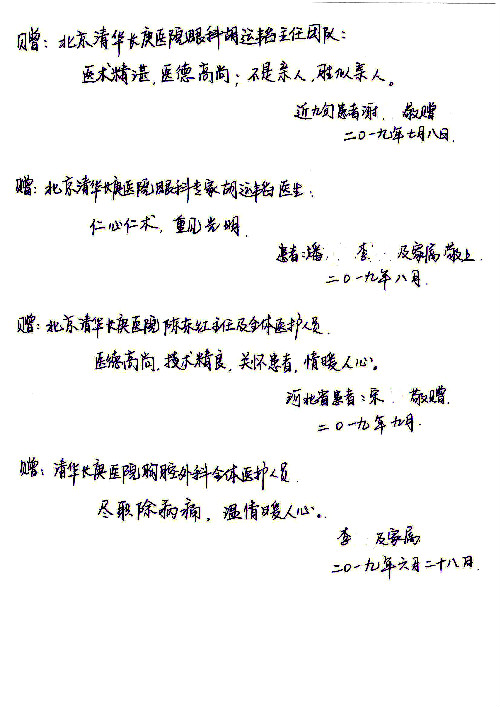 赠：北京清华长庚医院眼科胡运韬主任团队：
医术精湛，医德高尚；不是亲人，胜似亲人。
近九旬患者谢 敬赠
二〇一九年七月八日.
赠：北京清华长庚医院眼科专家胡运韬医生：
仁心仁术，重见光明.
患者：潘 查 及家属敬上
二〇一九年八月.
赠：北京清华长庚医院陈东红主任及全体医护人员.
医德高尚，技术精良，关怀患者，情暖人心。
河北省患者：宋 敬赠.
二〇一九年九月.
赠：清华长庚医院胸腔外科全体医护人员.
尽职除病痛，温情暖人心。
查 及家属
二〇一九年六月二十八日.